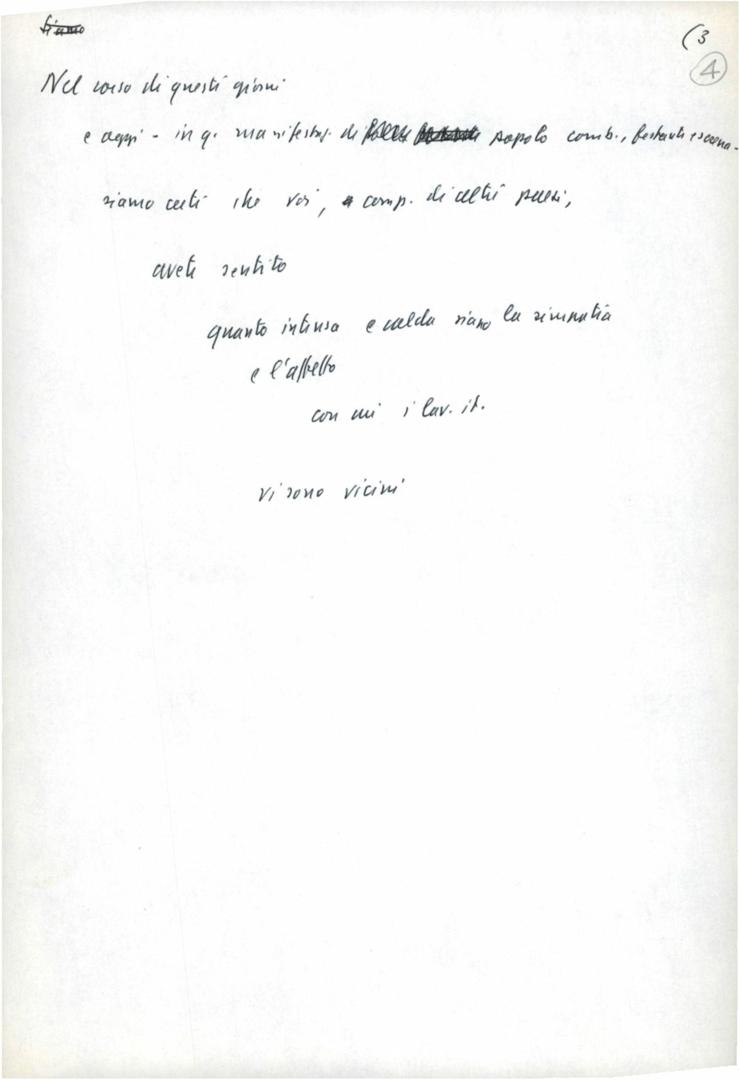 Siamo
(3
4
Nel corso di questi giorni
e oggi - in q. manifestaz. di popolo comb., festante e
siamo certi che voi, comp. di altri paesi,
avete sentito
quanto intensa e calda siano la simpatia
e l'affetto
con cui i lav. it.
vi sono vicini